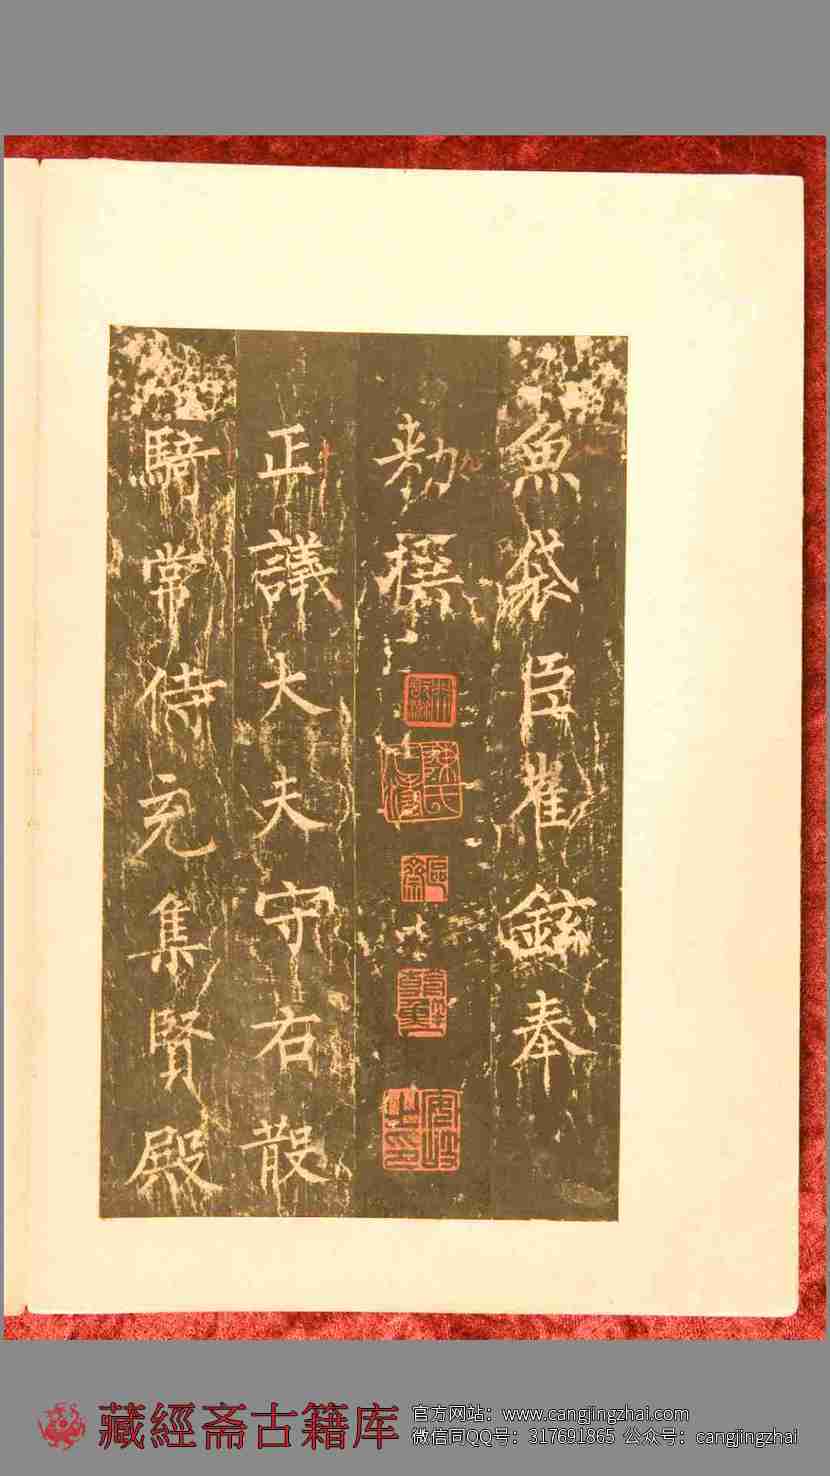 魚袋臣崔鉉奉
勑撰
正議大夫守右散
騎常侍充集賢殿
藏經斋古籍库
官方网站：www.cangjingzhai.com
微信同QQ号：317691865 公众号：cangjingzhai